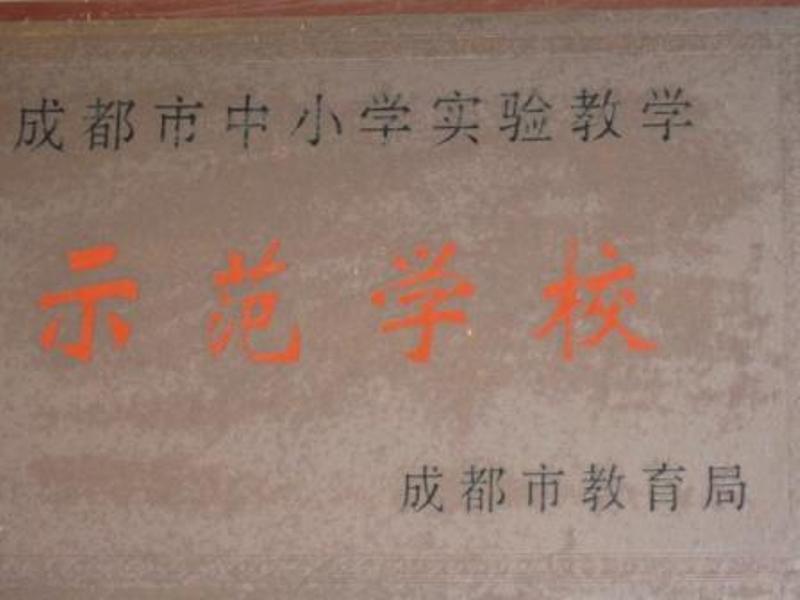 成都市中小学实验教学
示范学校
成都市教育局